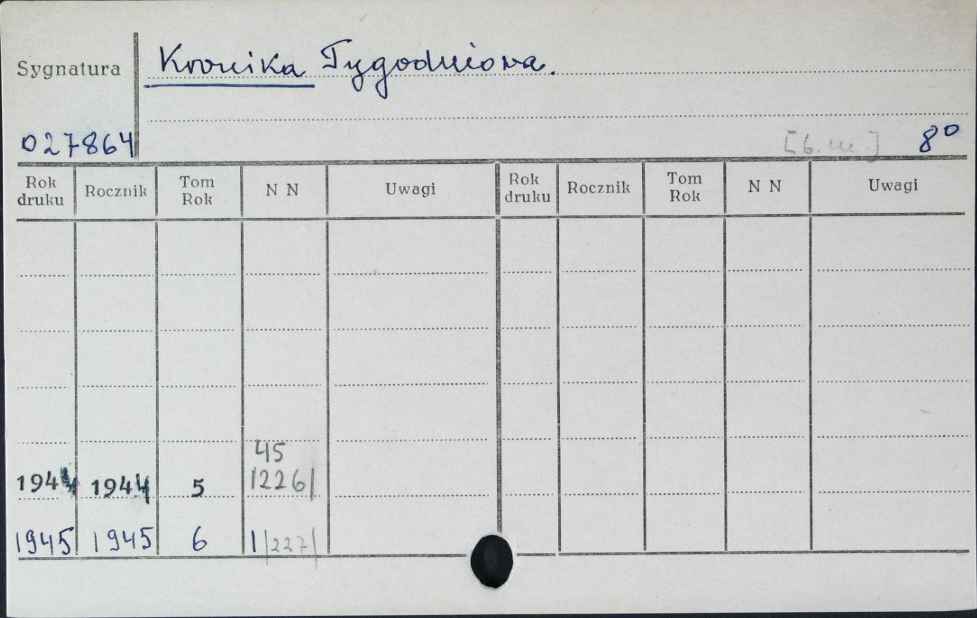 Sygnatura Kronika Tygodniowa.
027864 [b. m.] 8º
Rok druku Rocznik Tom Rok N N Uwagi Rok druku Rocznik Tom Rok N N Uwagi
45
1944 1944 5 /226/
1945 1945 6 1/227/